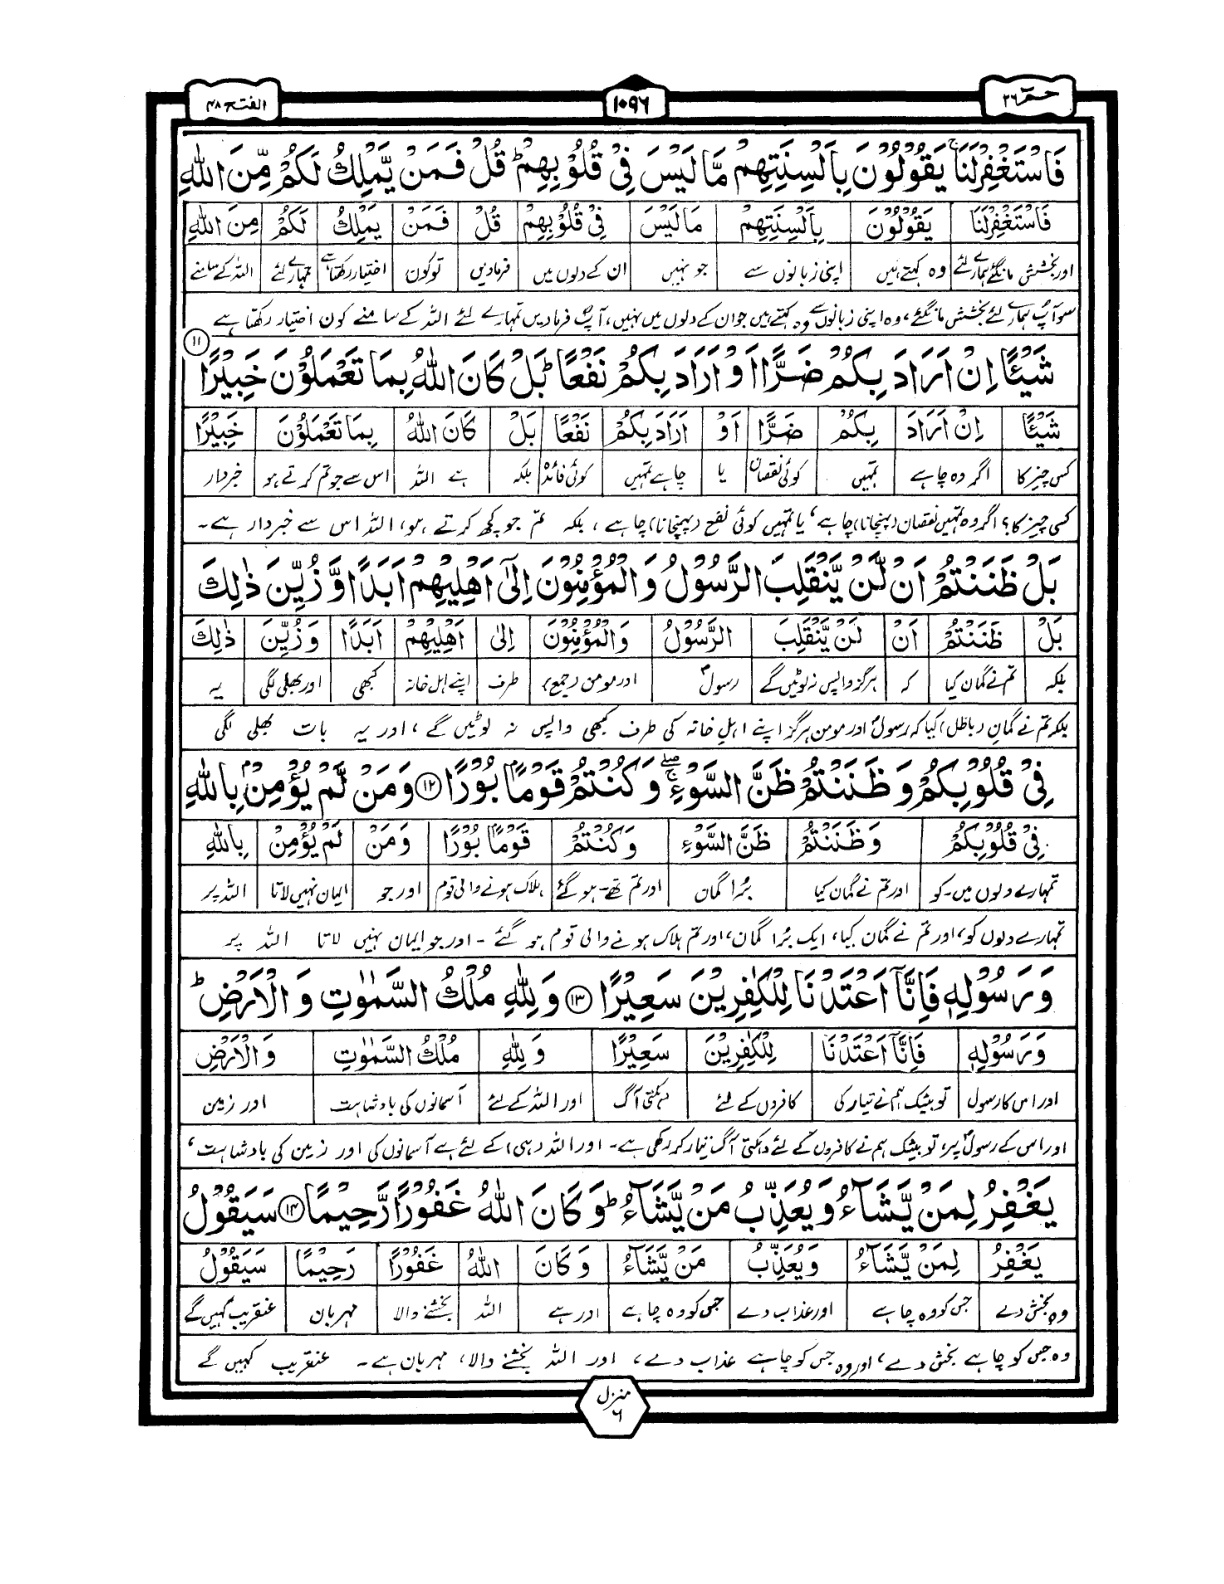 حٰمٓ ۲۶
۱۰۹۶
الفتح ۴۸
فَاسْتَغْفِرْلَنَا ۚ يَقُوْلُوْنَ بِاَلْسِنَتِهِمْ مَّا لَيْسَ فِيْ قُلُوْبِهِمْ ؕ قُلْ فَمَنْ يَّمْلِكُ لَكُمْ مِّنَ اللّٰهِ
فَاسْتَغْفِرْلَنَا يَقُوْلُوْنَ بِاَلْسِنَتِهِمْ مَا لَيْسَ فِيْ قُلُوْبِهِمْ قُلْ فَمَنْ يَمْلِكُ لَكُمْ مِنَ اللّٰهِ
اور بخشش مانگئے ہمارے لئے وہ کہتے ہیں اپنی زبانوں سے جو نہیں ان کے دلوں میں فرمادیں تو کون اختیار رکھتا ہے تمہارے لئے اللہ کے سامنے
سو آپؐ ہمارے لئے بخشش مانگئے، وہ اپنی زبانوں سے وہ کہتے ہیں جو ان کے دلوں میں نہیں، آپؐ فرمادیں تمہارے لئے اللہ کے سامنے کون اختیار رکھتا ہے
شَيْـًٔا اِنْ اَرَادَ بِكُمْ ضَرًّا اَوْ اَرَادَ بِكُمْ نَفْعًا ؕ بَلْ كَانَ اللّٰهُ بِمَا تَعْمَلُوْنَ خَبِيْرًا ۱۱
شَيْـًٔا اِنْ اَرَادَ بِكُمْ ضَرًّا اَوْ اَرَادَ بِكُمْ نَفْعًا بَلْ كَانَ اللّٰهُ بِمَا تَعْمَلُوْنَ خَبِيْرًا
کسی چیز کا اگر وہ چاہے تمہیں کوئی نقصان یا چاہے تمہیں کوئی فائدہ بلکہ ہے اللہ اس سے جو تم کرتے ہو خبردار
کسی چیز کا؟ اگر وہ تمہیں نقصان (پہنچانا) چاہے، یا تمہیں کوئی نفع (پہنچانا) چاہے، بلکہ تم جو کچھ کرتے ہو، اللہ اس سے خبردار ہے۔
بَلْ ظَنَنْتُمْ اَنْ لَّنْ يَّنْقَلِبَ الرَّسُوْلُ وَالْمُؤْمِنُوْنَ اِلٰٓى اَهْلِيْهِمْ اَبَدًا وَّزُيِّنَ ذٰلِكَ
بَلْ ظَنَنْتُمْ اَنْ لَنْ يَّنْقَلِبَ الرَّسُوْلُ وَالْمُؤْمِنُوْنَ اِلٰى اَهْلِيْهِمْ اَبَدًا وَزُيِّنَ ذٰلِكَ
بلکہ تم نے گمان کیا کہ ہرگز واپس نہ لوٹیں گے رسولؐ اور مومن (جمع) طرف اپنے اہل خانہ کبھی اور بھلی لگی یہ
بلکہ تم نے گمان (باطل) کیا کہ رسولؐ اور مومن ہرگز اپنے اہلِ خانہ کی طرف کبھی واپس نہ لوٹیں گے، اور یہ بات بھلی لگی
فِيْ قُلُوْبِكُمْ وَظَنَنْتُمْ ظَنَّ السَّوْءِ ۚۖ وَكُنْتُمْ قَوْمًۢا بُوْرًا ۱۲ وَمَنْ لَّمْ يُؤْمِنْۢ بِاللّٰهِ
فِيْ قُلُوْبِكُمْ وَظَنَنْتُمْ ظَنَّ السَّوْءِ وَكُنْتُمْ قَوْمًۢا بُوْرًا وَمَنْ لَمْ يُؤْمِنْ بِاللّٰهِ
تمہارے دلوں میں۔کو اور تم نے گمان کیا بُرا گمان اور تم تھے۔ہوگئے ہلاک ہونے والی قوم اور جو ایمان نہیں لاتا اللہ پر
تمہارے دلوں کو، اور تم نے گمان کیا، ایک بُرا گمان، اور تم ہلاک ہونے والی قوم ہو گئے ۔ اور جو ایمان نہیں لاتا اللہ پر
وَرَسُوْلِهٖ فَاِنَّآ اَعْتَدْنَا لِلْكٰفِرِيْنَ سَعِيْرًا ۱۳ وَلِلّٰهِ مُلْكُ السَّمٰوٰتِ وَالْاَرْضِ ؕ
وَرَسُوْلِهٖ فَاِنَّآ اَعْتَدْنَا لِلْكٰفِرِيْنَ سَعِيْرًا وَلِلّٰهِ مُلْكُ السَّمٰوٰتِ وَالْاَرْضِ
اور اس کا رسول تو بیشک ہم نے تیار کی کافروں کے لئے دہکتی آگ اور اللہ کے لئے آسمانوں کی بادشاہت اور زمین
اور اس کے رسولؐ پر، تو بیشک ہم نے کافروں کے لئے دہکتی آگ تیار کر رکھی ہے۔ اور اللہ (ہی) کے لئے ہے آسمانوں کی اور زمین کی بادشاہت،
يَغْفِرُ لِمَنْ يَّشَآءُ وَيُعَذِّبُ مَنْ يَّشَآءُ ؕ وَكَانَ اللّٰهُ غَفُوْرًا رَّحِيْمًا ۱۴ سَيَقُوْلُ
يَغْفِرُ لِمَنْ يَّشَآءُ وَيُعَذِّبُ مَنْ يَّشَآءُ وَكَانَ اللّٰهُ غَفُوْرًا رَحِيْمًا سَيَقُوْلُ
وہ بخش دے جس کو وہ چاہے اور عذاب دے جس کو وہ چاہے اور ہے اللہ بخشنے والا مہربان عنقریب کہیں گے
وہ جس کو چاہے بخش دے، اور وہ جس کو چاہے عذاب دے، اور اللہ بخشنے والا، مہربان ہے۔ عنقریب کہیں گے
منزل ۶